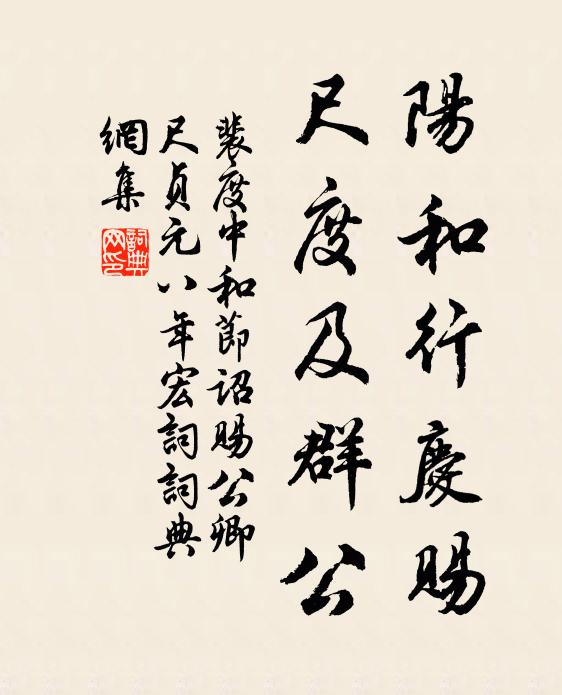 陽和行慶賜
尺度及群公
裴度中和節詔賜公卿
尺貞元八年宏詞詞典
網集
詞典
网印